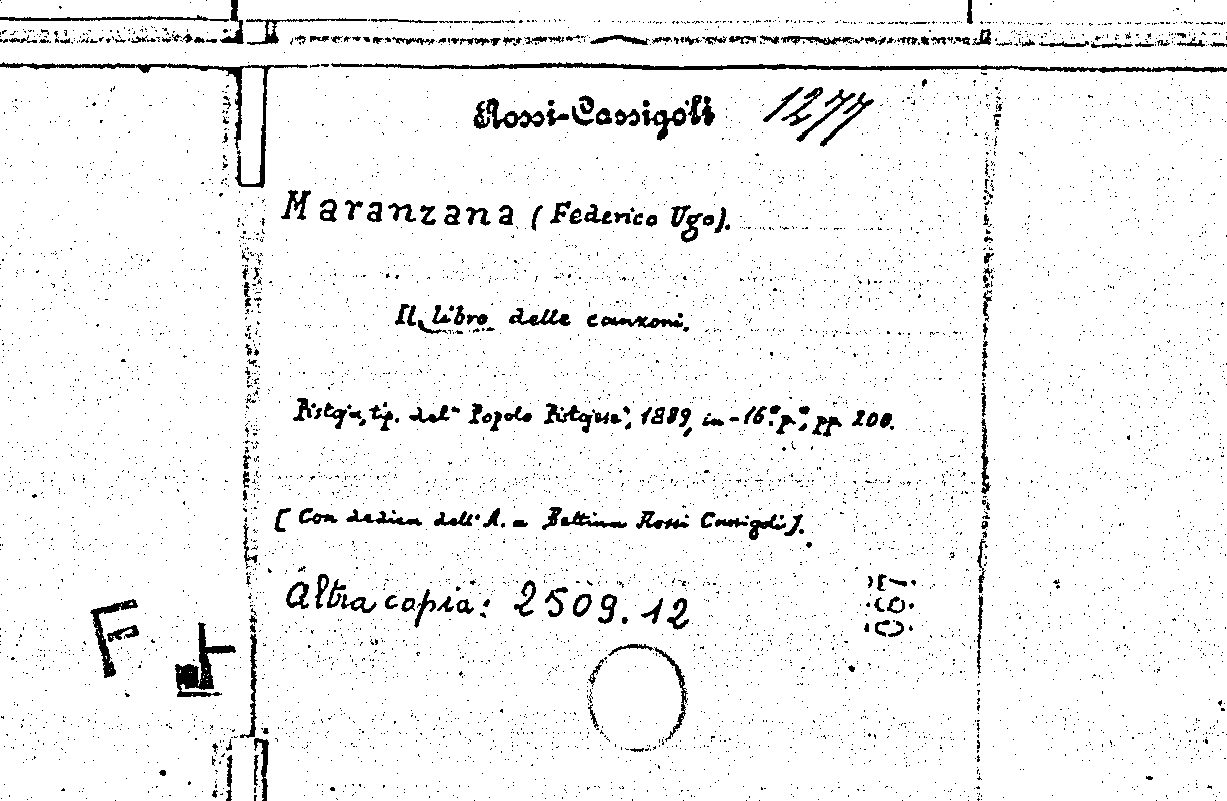 Rossi-Cassigoli 1277
Maranzana (Federico Ugo).
Il libro delle canzoni.
Pistoja, tip. del "Popolo Pistojese", 1889, in-16.° p.°, pp. 200.
[Con dedica dell'A. a Bettina Rossi Cassigoli].
Altra copia: 2509.12